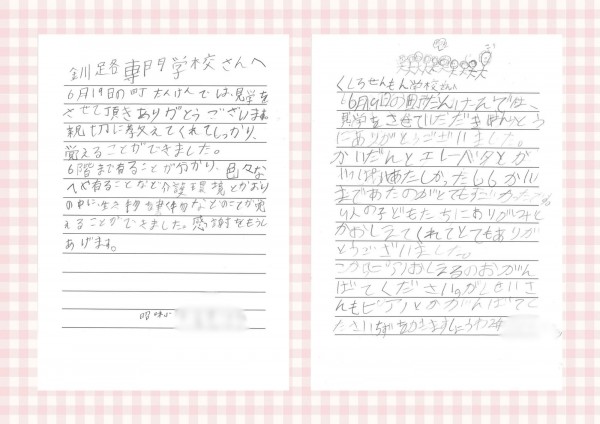 釧路専門学校さんへ
6月19日の町たんけんでは、見学を
させて頂きありがとうございます。
親切に教えてくれてしっかり、
覚えることができました。
6階まで有ることが分かり、色々な
へや有ることなど介護環境とかおり
の中に生き物は体のなどのことが覚
えることができました。感謝をもうし
あげます。
昭和小
くしろせんもん学校さん
6月19日の町たんけんでは、
見学をさせていただきほんとう
にありがとうございました。
かいだんとエレベータとか
いっぱいあたしか、たしか6かい
まであたのがとてもすごかったです。
4人の子どもたちにありがみと
かおしえてくれてとてもありが
とうございました。
こどもにおしえるのおがん
ばてください。がくせいさ
んもピアノとかがんばてく
ださい